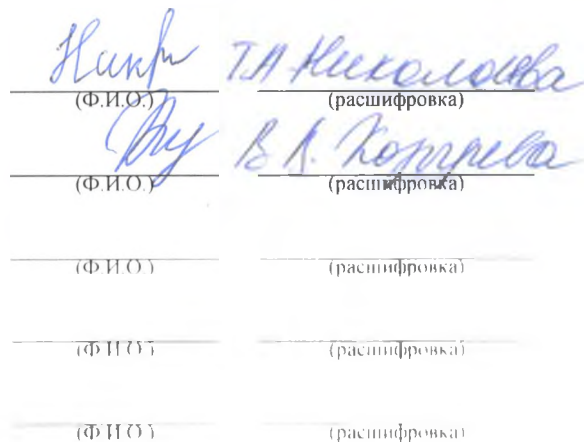 Т.А Николаева
(Ф.И.О.) (расшифровка)
В.А.
(Ф.И.О.) (расшифровка)
(Ф.И.О.) (расшифровка)
(Ф.И.О.) (расшифровка)
(Ф.И.О.) (расшифровка)